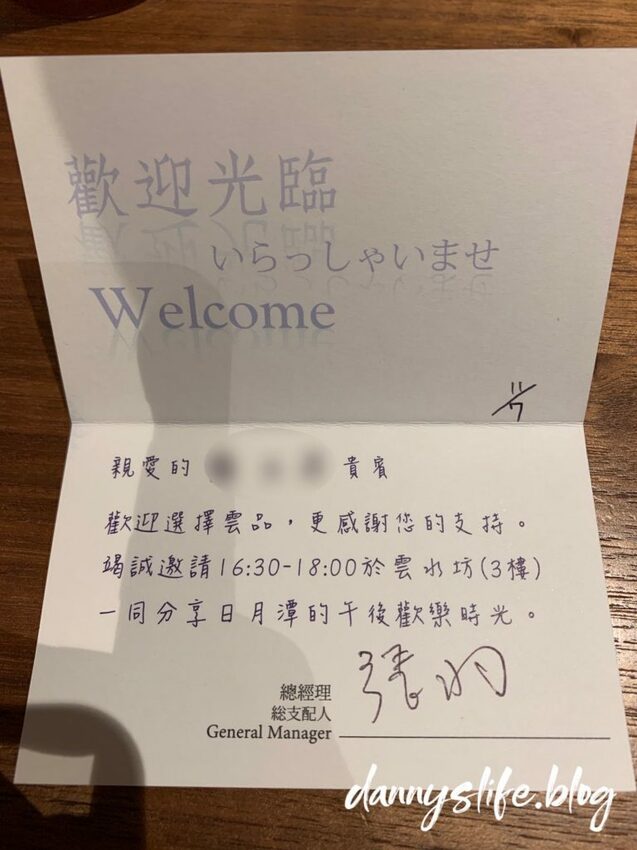 歡迎光臨
いらっしゃいませ
Welcome
11/7
親愛的 貴賓
歡迎選擇雲品，更感謝您的支持。
竭誠邀請16:30-18:00於雲水坊(3樓)
一同分享日月潭的午後歡樂時光。
總經理
総支配人
General Manager
dannyslife.blog